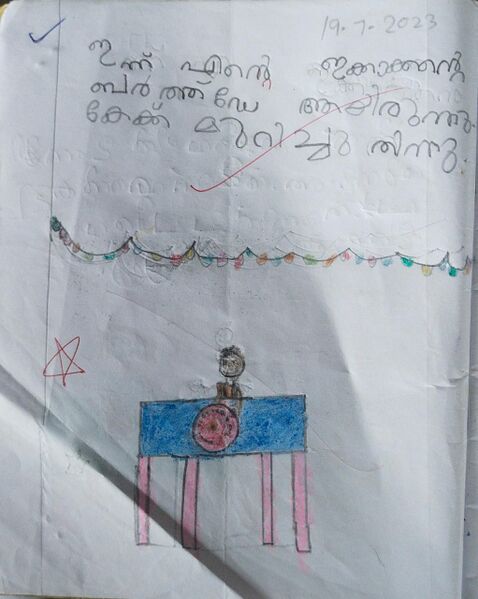 19-7-2023
ഇന്ന് എന്റെ ഇക്കാക്കന്റെ
ബർത്ത്ഡേ ആയിരുന്നു.
കേക്ക് മുറിച്ചു തിന്നു.